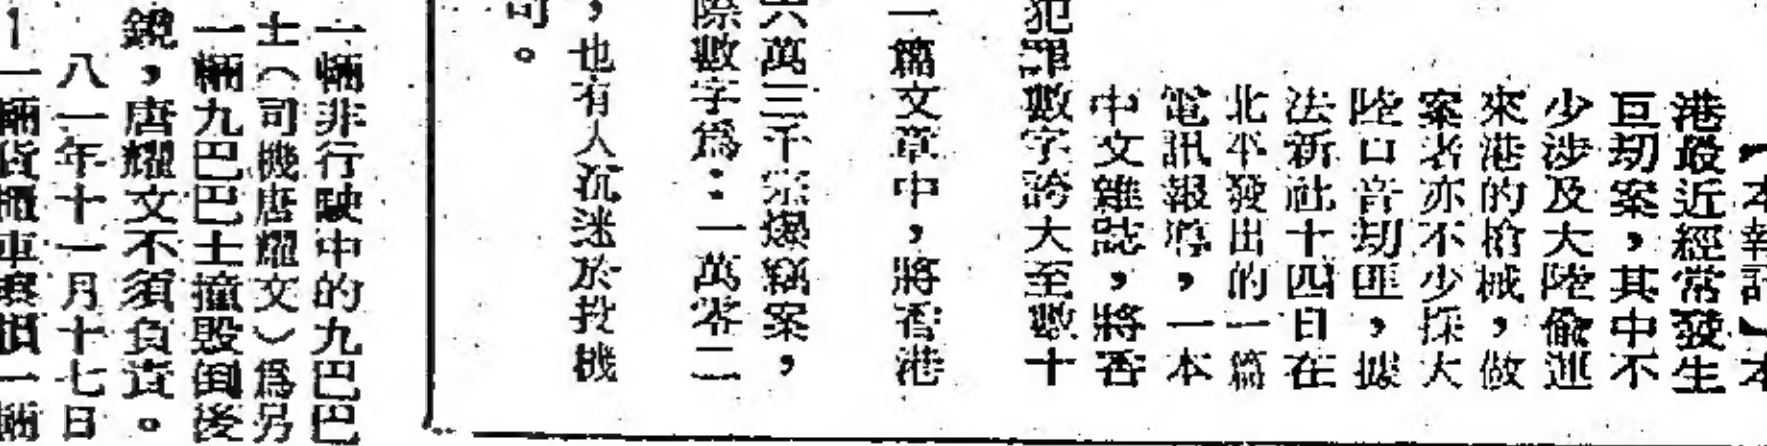 【本報訊】本
港最近經常發生
巨刧案，其中不
少涉及大陸偷運
來港的槍械，做
案者亦不少採大
陸口音刧匪，據
法新社十四日在
北平發出的一篇
電訊報導，一本
中文雜誌，將香
犯罪數字誇大至數十
一篇文章中，將香港
六萬三千宗爆竊案，
際數字爲：一萬零二
，也有人沉迷於投機
司。
一輛非行駛中的九巴巴
士（司機唐耀文）爲另
一輛九巴巴士撞毀倒後
鏡，唐耀文不須負責。
八一年十一月十七日
一輛貨櫃車